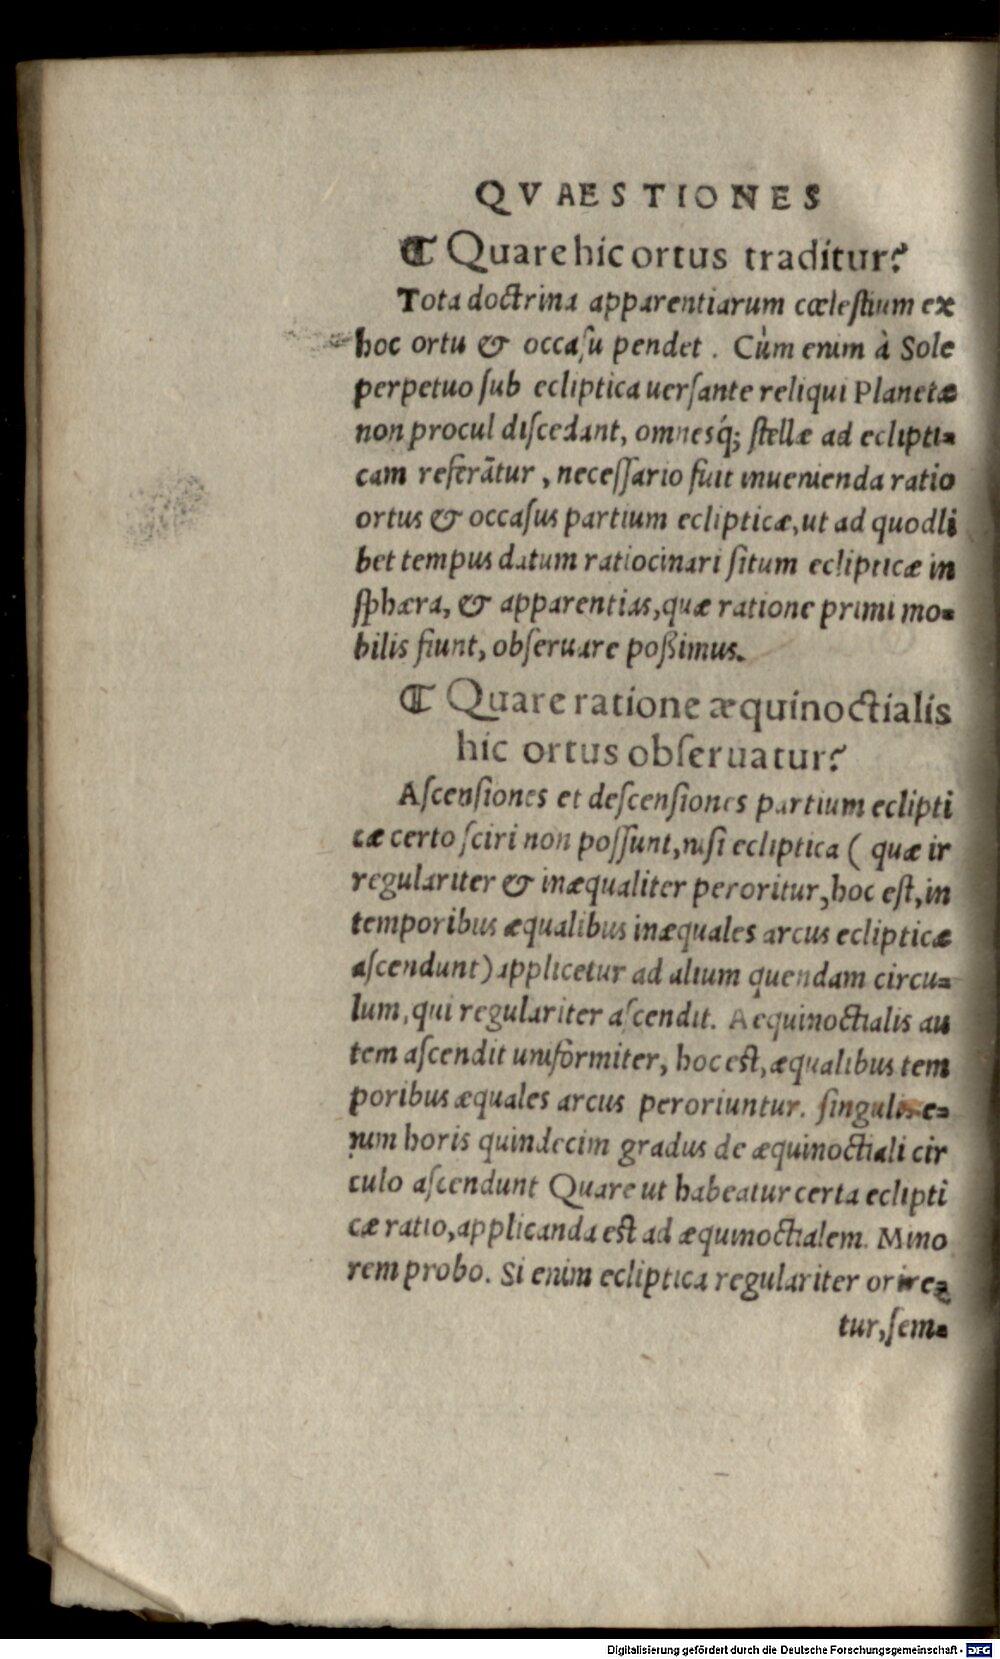 QVAESTIONES
¶ Quare hic ortus traditur?
Tota doctrina apparentiarum cœlestium ex
hoc ortu & occaſu pendet. Cùm enim à Sole
perpetuo ſub ecliptica uerſante reliqui Planetæ
non procul diſcedant, omnesq́; ſtellæ ad eclipti=
cam referãtur, neceſſario fuit inuenienda ratio
ortus & occaſus partium eclipticæ, ut ad quodli
bet tempus datum ratiocinari ſitum eclipticæ in
ſphæra, & apparentias, quæ ratione primi mo=
bilis fiunt, obſeruare poßimus.
¶ Quare ratione æquinoctialis
hic ortus obſeruatur?
Aſcenſiones et deſcenſiones partium eclipti
cæ certo ſciri non poſſunt, niſi ecliptica ( quæ ir
regulariter & inæqualiter peroritur, hoc eſt, in
temporibus æqualibus inæquales arcus eclipticæ
aſcendunt) applicetur ad alium quendam circu=
lum, qui regulariter aſcendit. Aequinoctialis au
tem aſcendit uniformiter, hoc eſt, æqualibus tem
poribus æquales arcus peroriuntur. ſingulis e=
nim horis quindecim gradus de æquinoctiali cir
culo aſcendunt Quare ut habeatur certa eclipti
cæ ratio, applicanda eſt ad æquinoctialem. Mino
rem probo. Si enim ecliptica regulariter orire=
tur, ſem=
Digitalisierung gefördert durch die Deutsche Forschungsgemeinschaft - DFG